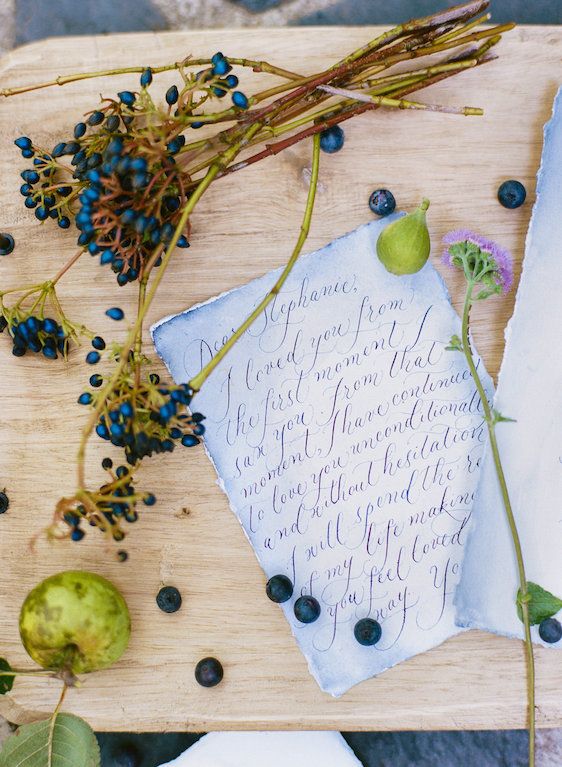 Dear Stephanie,
I loved you from
the first moment I
saw you. From that
moment, I have continued
to love you unconditionally
and without hesitation
I will spend the
of my life making
you feel loved
way.